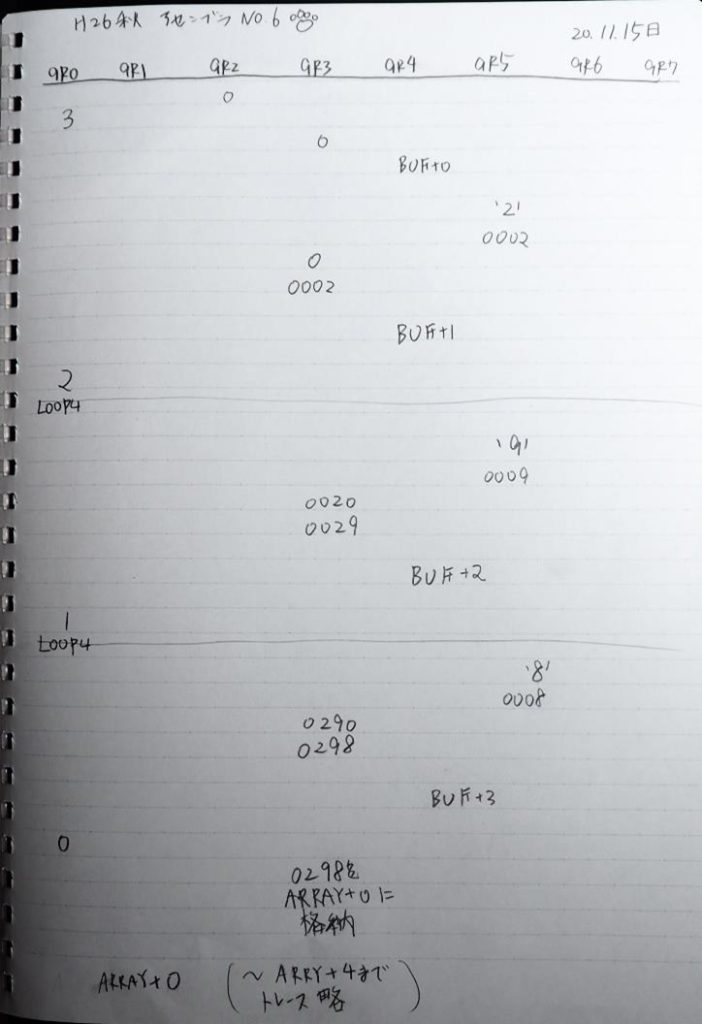 H26秋 アセンブラ NO.6
20.11.15日
GR0 GR1 GR2 GR3 GR4 GR5 GR6 GR7
0
3
0
BUF+0
'2'
0002
0
0002
BUF+1
2
LOOP4
'9'
0009
0020
0029
BUF+2
1
LOOP4
'8'
0008
0290
0298
BUF+3
0
0298を
ARRAY+0に
格納
ARRAY+0 (～ARRY+4まで
トレース略)